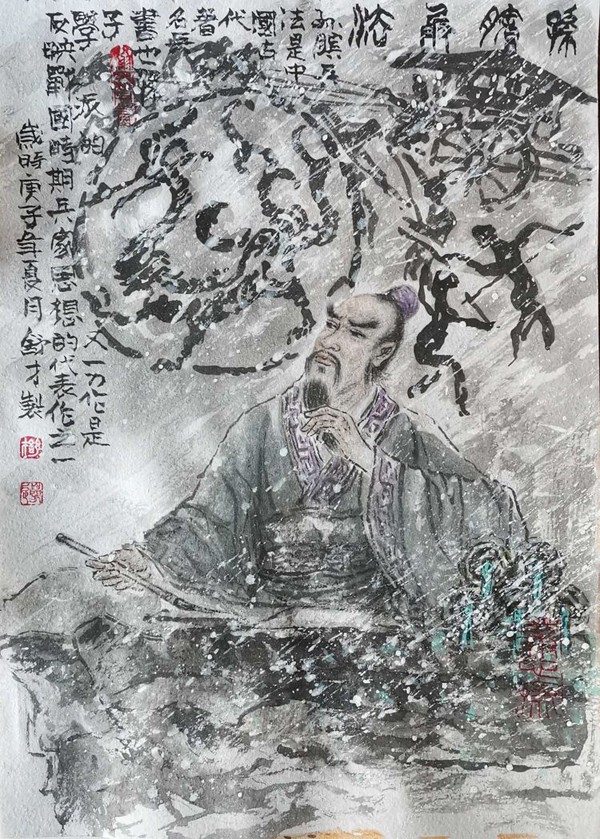 孫臏兵法
孫臏兵
法是中
國古
代
著
名兵
書也孫
子
學派的
又一力作是
反映戰國時期兵家思想的代表作之一
歲時庚子年夏月舒才製